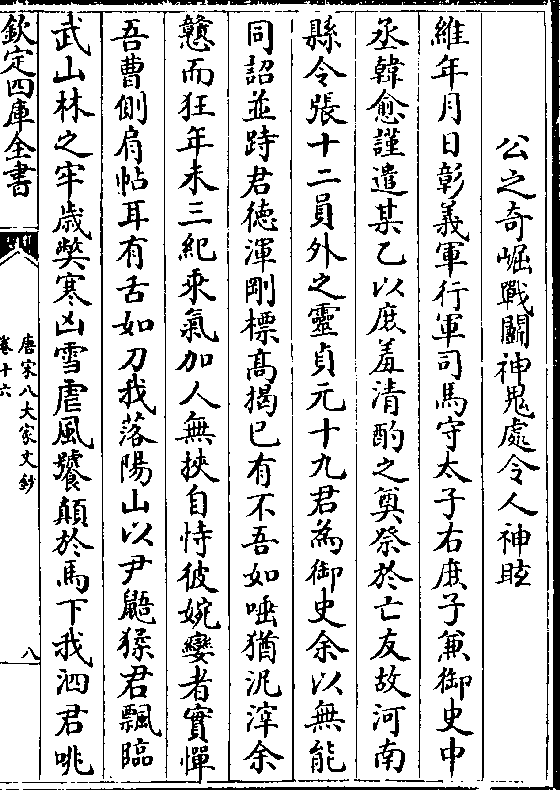 公之奇崛戰鬭神鬼處令人神眩
維年月日彰義軍行軍司馬守太子右庶子兼御史中
丞韓愈謹遣某乙以庶羞清酌之奠祭於亡友故河南
縣令張十二員外之靈貞元十九君為御史余以無能
同詔並跱君德渾剛標髙揭已有不吾如唾猶泥滓余
戇而狂年未三紀乘氣加人無挾自恃彼婉孌者實憚
吾曹側肩帖耳有舌如刀我落陽山以尹鼯猱君飄臨
武山林之牢歳弊寒凶雪虐風饕顛於馬下我泗君咷
欽定四庫全書
唐宋八大家文鈔
卷十六
八